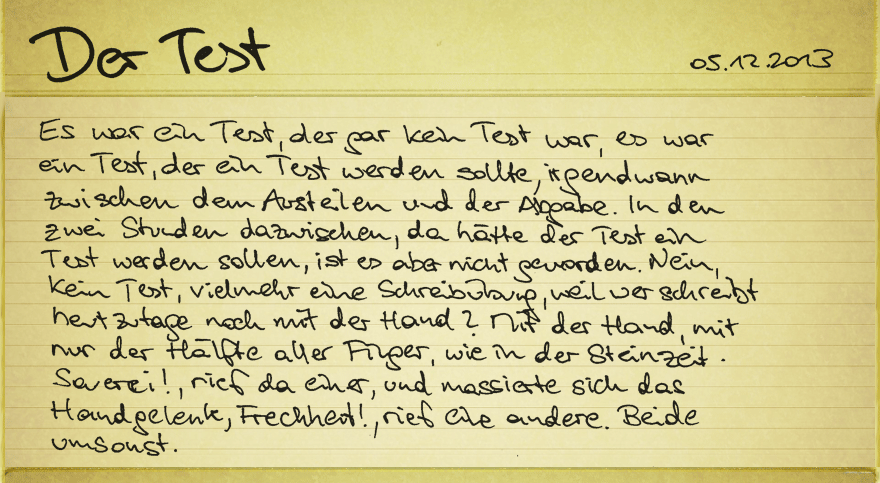 Der Test
05.12.2013
Es war ein Test, der gar kein Test war, es war
ein Test, der ein Test werden sollte, irgendwann
zwischen dem Austeilen und der Abgabe. In den
zwei Stunden dazwischen, da hätte der Test ein
Test werden sollen, ist es aber nicht geworden. Nein,
kein Test, vielmehr eine Schreibübung, weil wer schreibt
heutzutage noch mit der Hand? Mit der Hand, mit
nur der Hälfte aller Finger, wie in der Steinzeit.
Sauerei!, rief da einer, und massierte sich das
Handgelenk, Frechheit!, rief eine andere. Beide
umsonst.